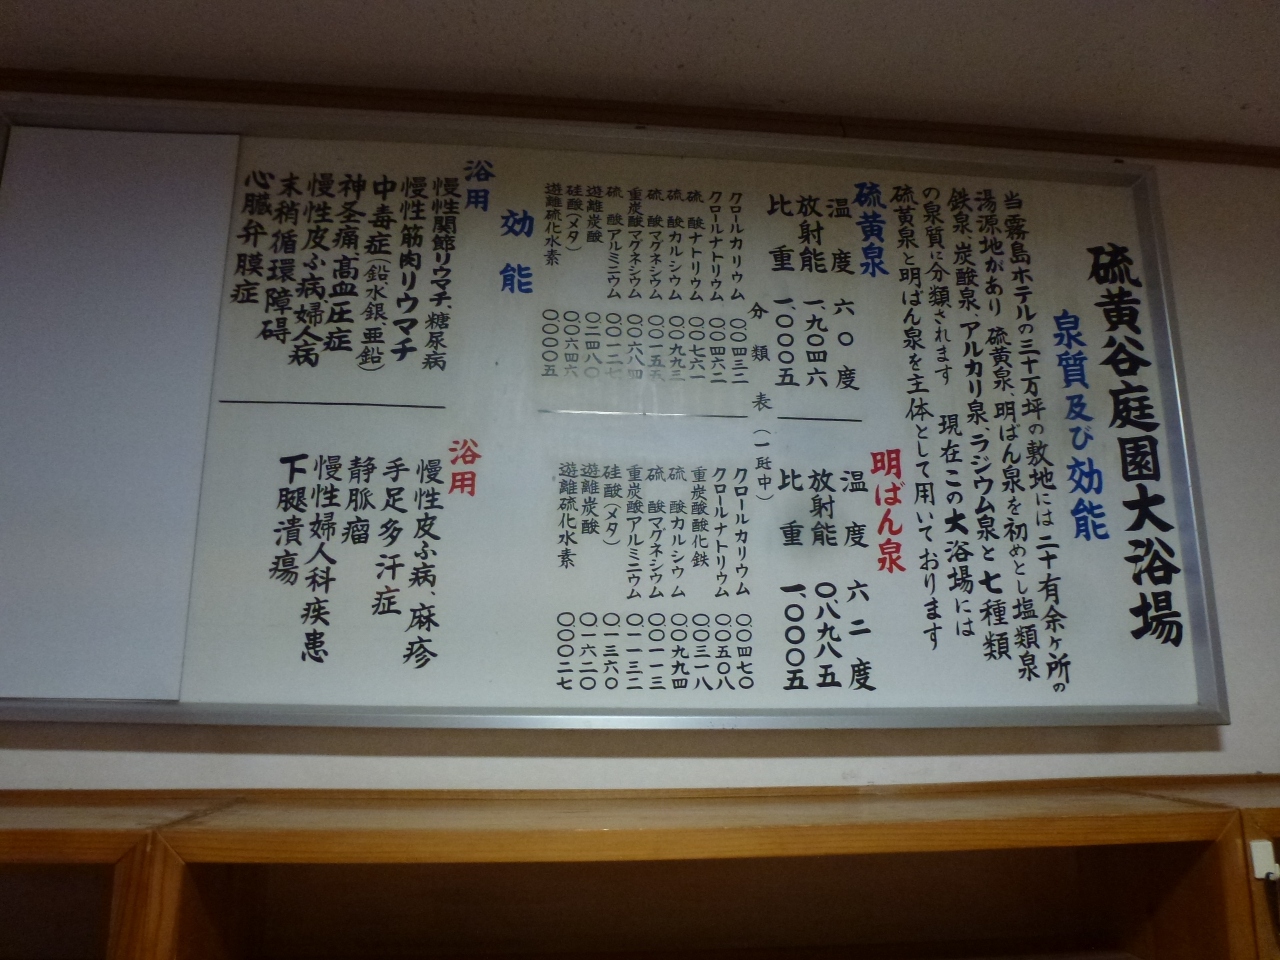 硫黄谷庭園大浴場
泉質及び効能
当霧島ホテルの三十万坪の敷地には二十有余ヶ所の
湯源地があり 硫黄泉、明ばん泉を初めとし塩類泉
鉄泉、炭酸泉、アルカリ泉、ラジウム泉と七種類
の泉質に分類されます 現在この大浴場には
硫黄泉と明ばん泉を主体として用いております
硫黄泉
温度 六〇度
放射能 一、九〇四六
比重 一、〇〇〇五
明ばん泉
温度 六二度
放射能 〇、八九八五
比重 一、〇〇〇五
分類表（一瓩中）
クロールカリウム 〇〇四三二
クロールナトリウム 〇〇四六二
硫酸ナトリウム 〇〇七六一
硫酸カルシウム 〇〇九九三
硫酸マグネシウム 〇〇一五五
重炭酸マグネシウム 〇〇六八四
硫酸アルミニウム 〇〇一二七
遊離炭酸 〇二四八〇
硅酸（メタ） 〇〇六四六
遊離硫化水素 〇〇〇〇五
クロールカリウム 〇〇四七〇
クロールナトリウム 〇〇五〇八
重炭酸酸化鉄 〇〇三一八
硫酸カルシウム 〇〇九九四
硫酸マグネシウム 〇〇一一三
重炭酸アルミニウム 〇一一三二
硅酸（メタ） 〇一三六〇
遊離炭酸 〇一六二〇
遊離硫化水素 〇〇〇二七
効能
浴用
慢性関節リウマチ、糖尿病
慢性筋肉リウマチ
中毒症（鉛、水銀、亜鉛）
神圣痛、高血圧症
慢性皮ふ病婦人病
末梢循環障碍
心臓弁膜症
浴用
慢性皮ふ病、麻疹
手足多汗症
静脈瘤
慢性婦人科疾患
下腿潰瘍